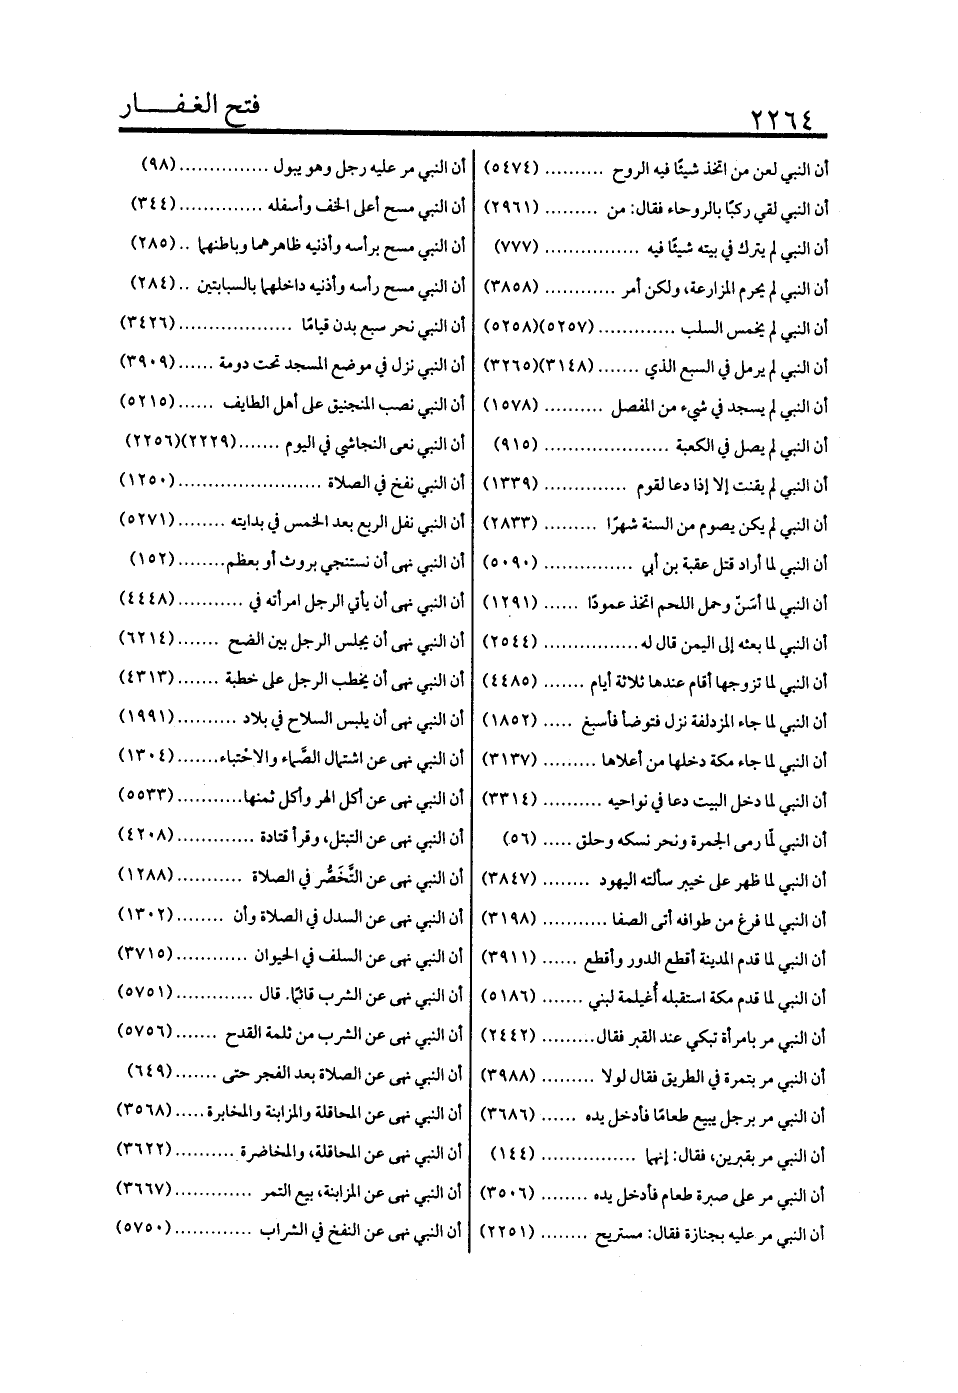 ٢٢٦٤
فتح الغفــــار
أن النبي لعن من اتخذ شيئًا فيه الروح .......... (٥٤٧٤)
أن النبي لقي ركبًا بالروحاء فقال: من ......... (٢٩٦١)
أن النبي لم يترك في بيته شيئًا فيه ................ (٧٧٧)
أن النبي لم يحرم المزارعة، ولكن أمر ............ (٣٨٥٨)
أن النبي لم يخمس السلب ............. (٥٢٥٧)(٥٢٥٨)
أن النبي لم يرمل في السبع الذي ....... (٣١٤٨)(٣٢٦٥)
أن النبي لم يسجد في شيء من المفصل .......... (١٥٧٨)
أن النبي لم يصل في الكعبة ..................... (٩١٥)
أن النبي لم يقنت إلا إذا دعا لقوم .............. (١٣٣٩)
أن النبي لم يكن يصوم من السنة شهرًا ......... (٢٨٣٣)
أن النبي لما أراد قتل عقبة بن أبي ............... (٥٠٩٠)
أن النبي لما أسَنّ وحمل اللحم اتخذ عمودًا ...... (١٢٩١)
أن النبي لما بعثه إلى اليمن قال له................ (٢٥٤٤)
أن النبي لما تزوجها أقام عندها ثلاثة أيام ....... (٤٤٨٥)
أن النبي لما جاء المزدلفة نزل فتوضأ فأسبغ ..... (١٨٥٢)
أن النبي لما جاء مكة دخلها من أعلاها ......... (٣١٣٧)
أن النبي لما دخل البيت دعا في نواحيه .......... (٣٣١٤)
أن النبي لمّا رمى الجمرة ونحر نسكه وحلق ..... (٥٦)
أن النبي لما ظهر على خيبر سألته اليهود ........ (٣٨٤٧)
أن النبي لما فرغ من طوافه أتى الصفا ........... (٣١٩٨)
أن النبي لما قدم المدينة أقطع الدور وأقطع ...... (٣٩١١)
أن النبي لما قدم مكة استقبله أُغيلمة لبني ....... (٥١٨٦)
أن النبي مر بامرأة تبكي عند القبر فقال......... (٢٤٤٢)
أن النبي مر بتمرة في الطريق فقال لولا ......... (٣٩٨٨)
أن النبي مر برجل يبيع طعامًا فأدخل يده ...... (٣٦٨٦)
أن النبي مر بقبرين، فقال: إنهما ................ (١٤٤)
أن النبي مر على صبرة طعام فأدخل يده ........ (٣٥٠٦)
أن النبي مر عليه بجنازة فقال: مستريح ........ (٢٢٥١)
أن النبي مر عليه رجل وهو يبول ............... (٩٨)
أن النبي مسح أعلى الخف وأسفله .............. (٣٤٤)
أن النبي مسح برأسه وأذنيه ظاهرهما وباطنهما .. (٢٨٥)
أن النبي مسح رأسه وأذنيه داخلهما بالسبابتين .. (٢٨٤)
أن النبي نحر سبع بدن قيامًا ................... (٣٤٢٦)
أن النبي نزل في موضع المسجد تحت دومة ...... (٣٩٠٩)
أن النبي نصب المنجنيق على أهل الطايف ...... (٥٢١٥)
أن النبي نعى النجاشي في اليوم .......(٢٢٢٩)(٢٢٥٦)
أن النبي نفخ في الصلاة ........................ (١٢٥٠)
أن النبي نفل الربع بعد الخمس في بدايته ........ (٥٢٧١)
أن النبي نهى أن نستنجي بروث أو بعظم........ (١٥٢)
أن النبي نهى أن يأتي الرجل امرأته في ........... (٤٤٤٨)
أن النبي نهى أن يجلس الرجل بين الضح ....... (٦٢١٤)
أن النبي نهى أن يخطب الرجل على خطبة ....... (٤٣١٣)
أن النبي نهى أن يلبس السلاح في بلاد .......... (١٩٩١)
أن النبي نهى عن اشتمال الصَّماء والاحْتباء....... (١٣٠٤)
أن النبي نهى عن أكل الهر وأكل ثمنها........... (٥٥٣٣)
أن النبي نهى عن التبتل، وقرأ قتادة ............. (٤٢٠٨)
أن النبي نهى عن التَّخَصُّر في الصلاة ........... (١٢٨٨)
أن النبي نهى عن السدل في الصلاة وأن ........ (١٣٠٢)
أن النبي نهى عن السلف في الحيوان ............ (٣٧١٥)
أن النبي نهى عن الشرب قائمًا. قال ............. (٥٧٥١)
أن النبي نهى عن الشرب من ثلمة القدح ....... (٥٧٥٦)
أن النبي نهى عن الصلاة بعد الفجر حتى ....... (٦٤٩)
أن النبي نهى عن المحاقلة والمزابنة والمخابرة..... (٣٥٦٨)
أن النبي نهى عن المحاقلة، والمخاضرة .......... (٣٦٢٢)
أن النبي نهى عن المزابنة، بيع التمر ............. (٣٦٦٧)
أن النبي نهى عن النفخ في الشراب ............. (٥٧٥٠)